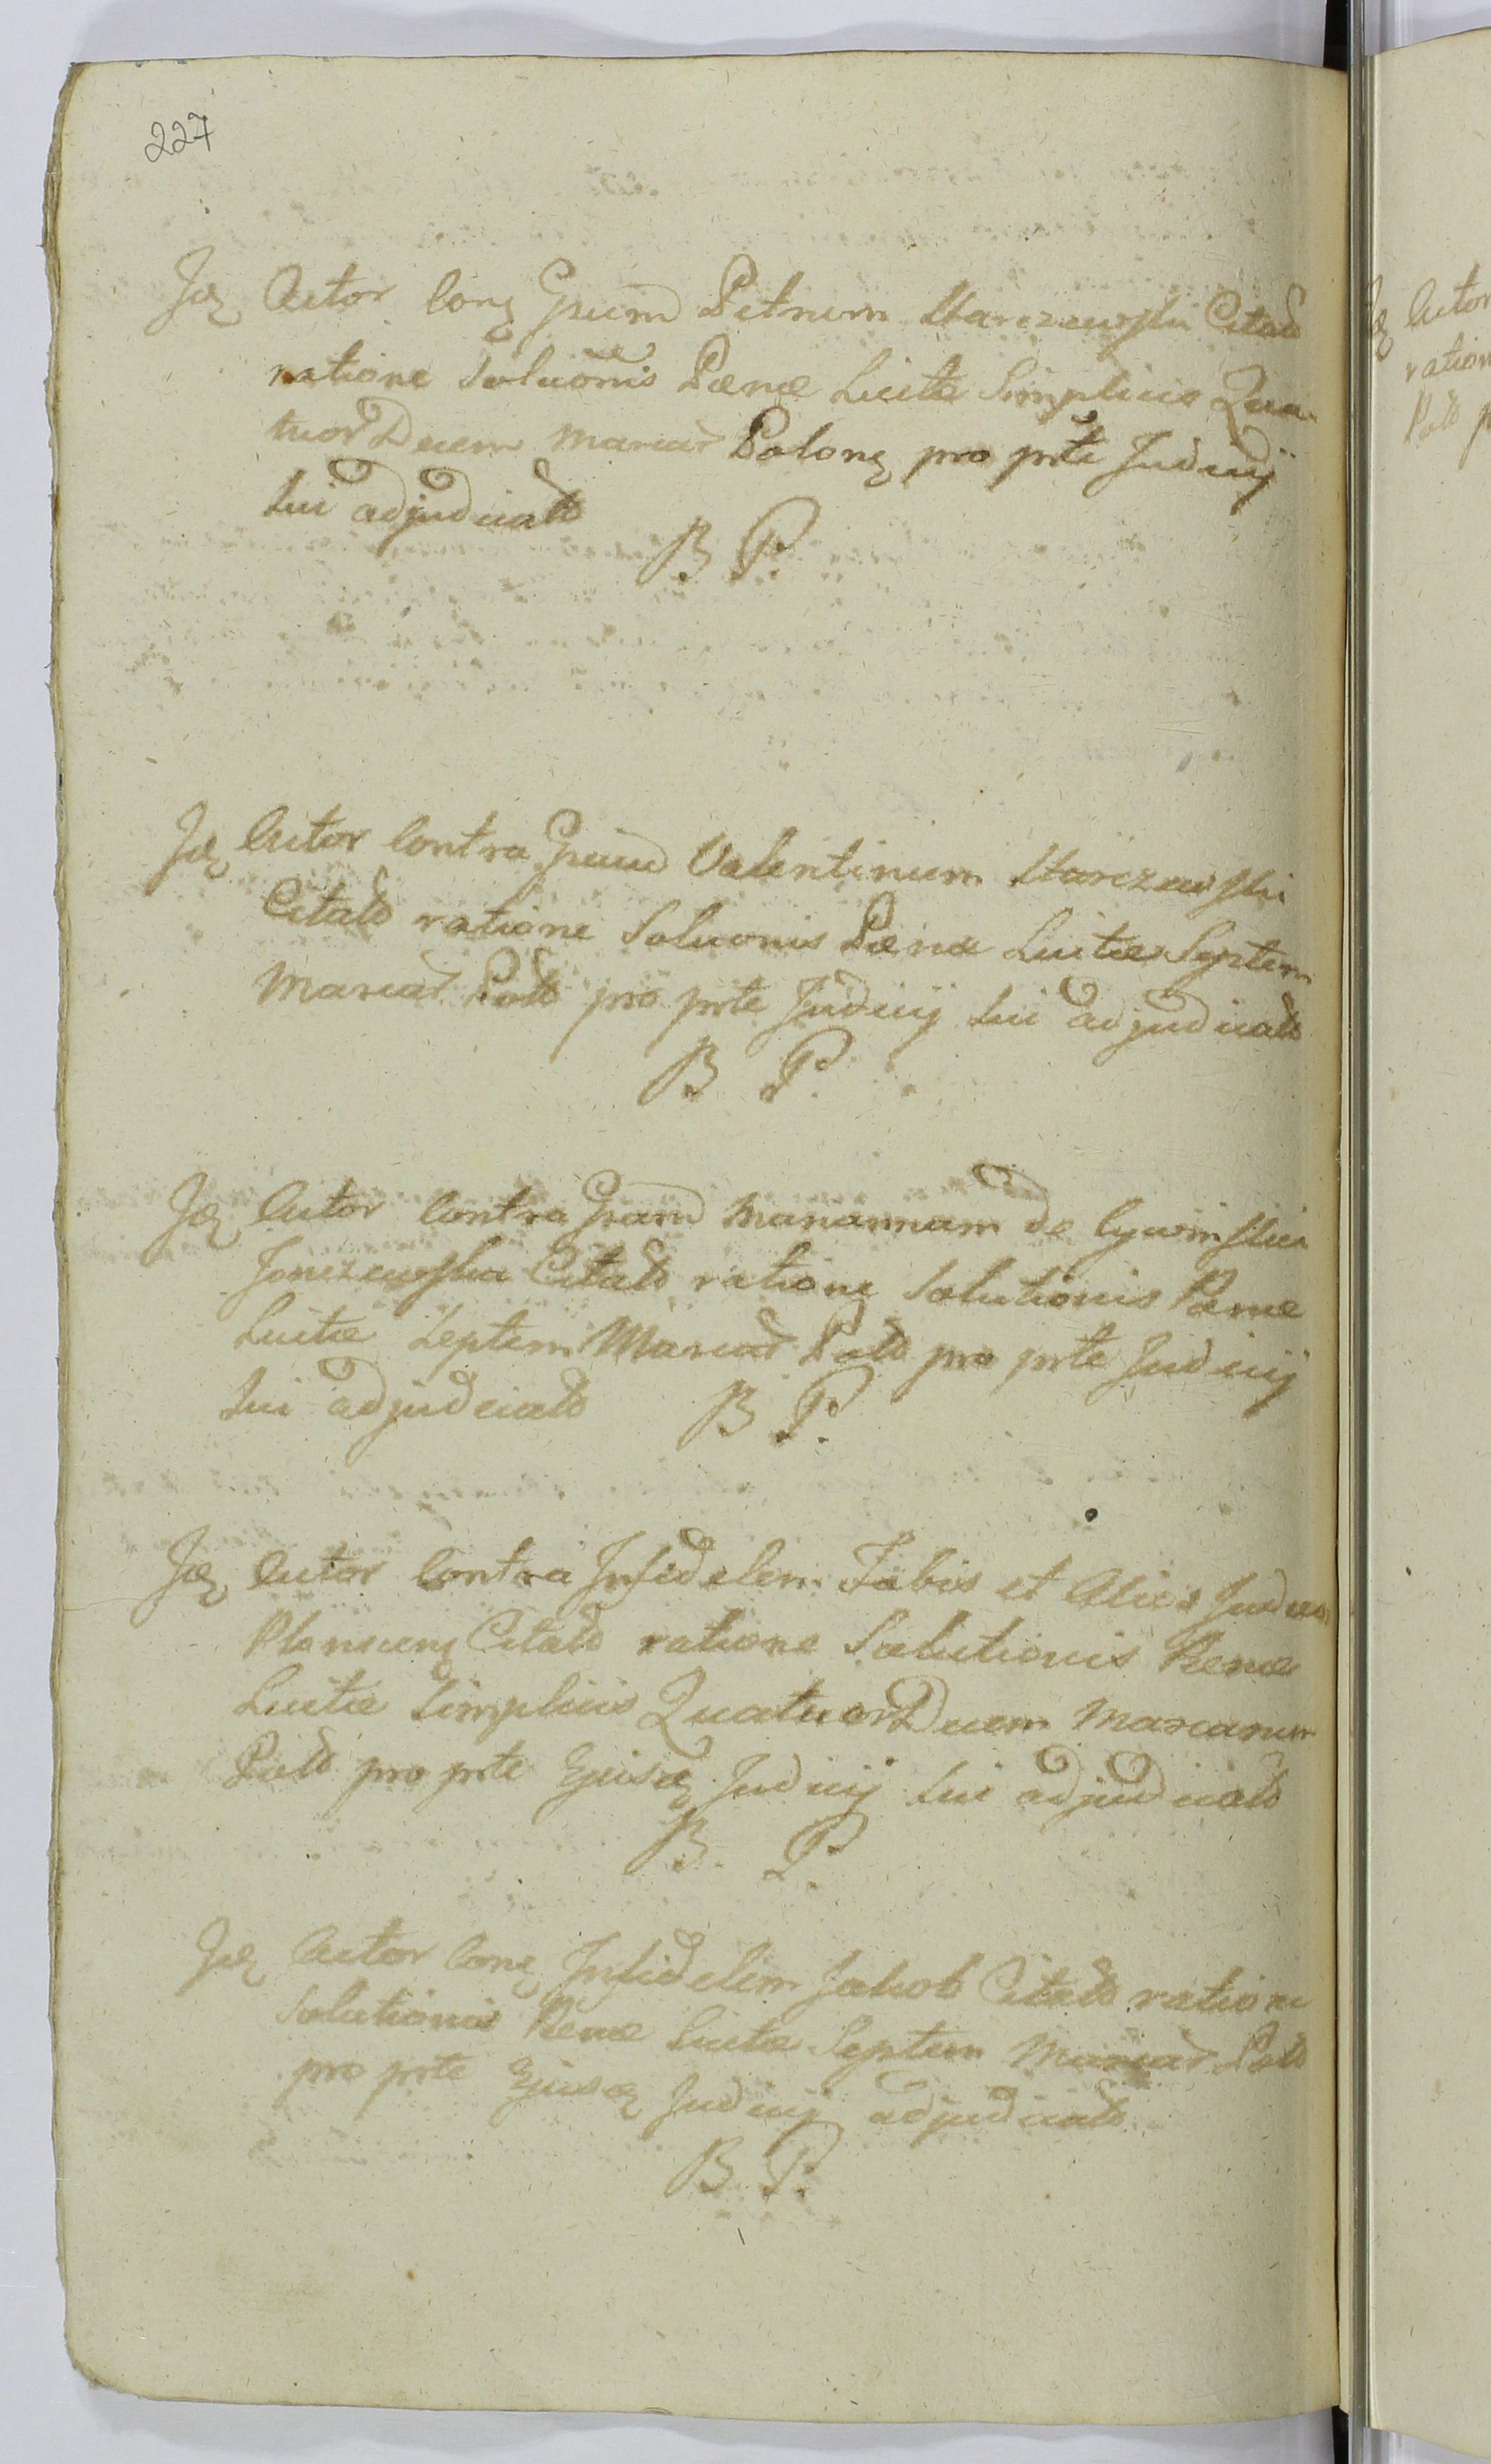 227
Idę Actor Conę Gnum Petrum Starczewski Citato
ratione Soluõnis Pænæ Luitæ Simplicis Qua-
tuorDecem Marcar Polonę pro prte Judicij
Sui adjudicato
B P.
Idę Actor Contra Gnum Valentinum Starczewski
Citato ratione Soluonis Pænæ Luitæ Septem
Marcar Polo pro prte Judicij Sui adjudicato
B P.
Idę Actor Contra Gnam Mariannam de
Citato ratione Solutionis Pænæ
Luitæ Septem Marcar Polo pro prte Judicij
Sui adjudicato B P.
Idę Actor Contra Infidelem et Alios
Citato ratione Solutionis Pænæ
Luitæ Simplicis QuatuorDecem Marcarum
Polo pro prte Ejusdę Judicij Sui adjudicato
B. P.
Idę Actor Conę Infidelem Jakob Citato ratione
Solutionis Pænæ Luitæ Septem Marcar Polo
pro prte Ejusdę Judicij adjudicato
B P.
Actor
ration
Polo p